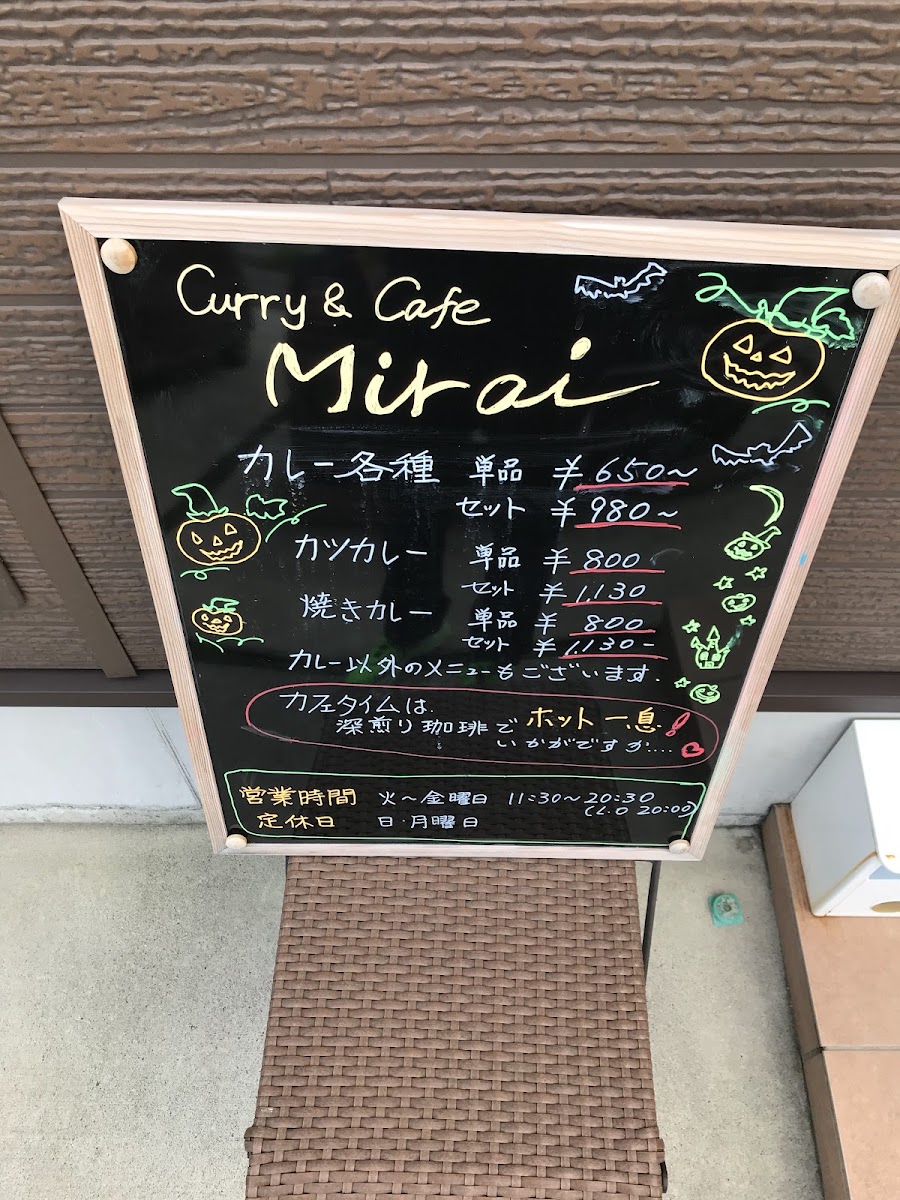 Curry & Cafe
Mirai
カレー各種 単品 ¥650~
セット ¥980~
カツカレー 単品 ¥800
セット ¥1,130
焼きカレー 単品 ¥800
セット ¥1,130-
カレー以外のメニューもございます.
カフェタイムは、
深煎り珈琲でホット一息!
いかがですか....
営業時間 火~金曜日 11:30~20:30
(L.O 20:00)
定休日 日・月曜日